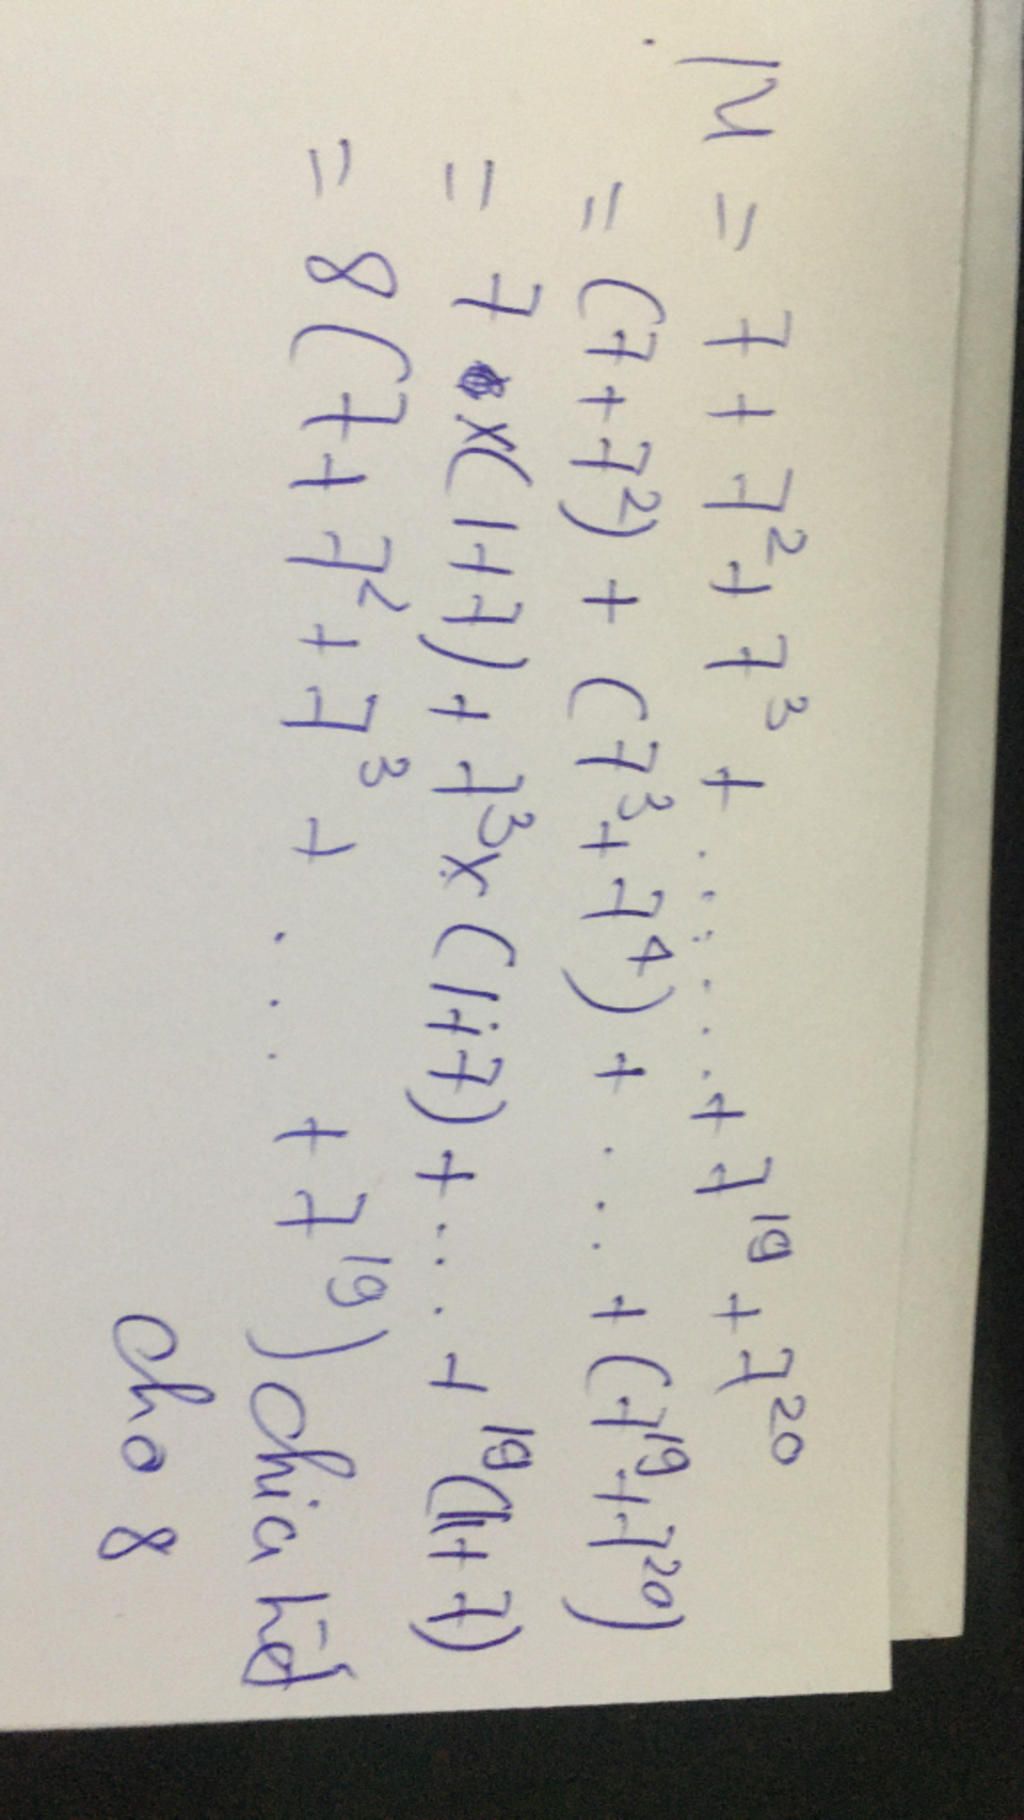 M = 7 + 7² + 7³ + ...... + 7¹⁹ + 7²⁰
= (7 + 7²) + (7³ + 7⁴) + ... + (7¹⁹ + 7²⁰)
= 7 x (1+7) + 7³ x (1+7) + ... + ¹⁹(1+7)
= 8 (7 + 7² + 7³ + ... + 7¹⁹) chia hết
cho 8